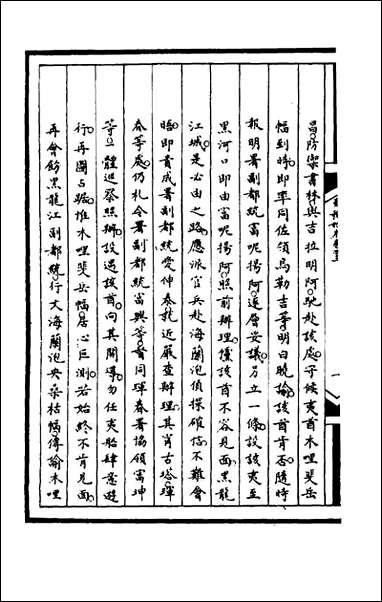 昌防禦書林與吉拉明阿馳赴該處守候夷酋木哩斐岳
幅到時即率同佐領烏勒吉等明白曉諭該酋肯否隨時
報明署副都統富呢揚阿逐層妥議另立一條設該夷至
黑河口即由富呢揚阿照前辦理儻該酋不容見面黑龍
江城是必由之路應派官兵赴海蘭泡偵探確信不難會
晤即責成署副都統愛伸泰就近嚴查辦理其甯古塔琿
春等處仍札令署副都統富興等督同琿春署協領富坤
等一體巡察照辦設遇該酋向其開導勿任夷船肆意遊
行再圖占踞惟木哩斐岳幅居心叵測若始終不肯見面
再會飭黑龍江副都統行文海蘭泡夾桑枯幅傳諭木哩